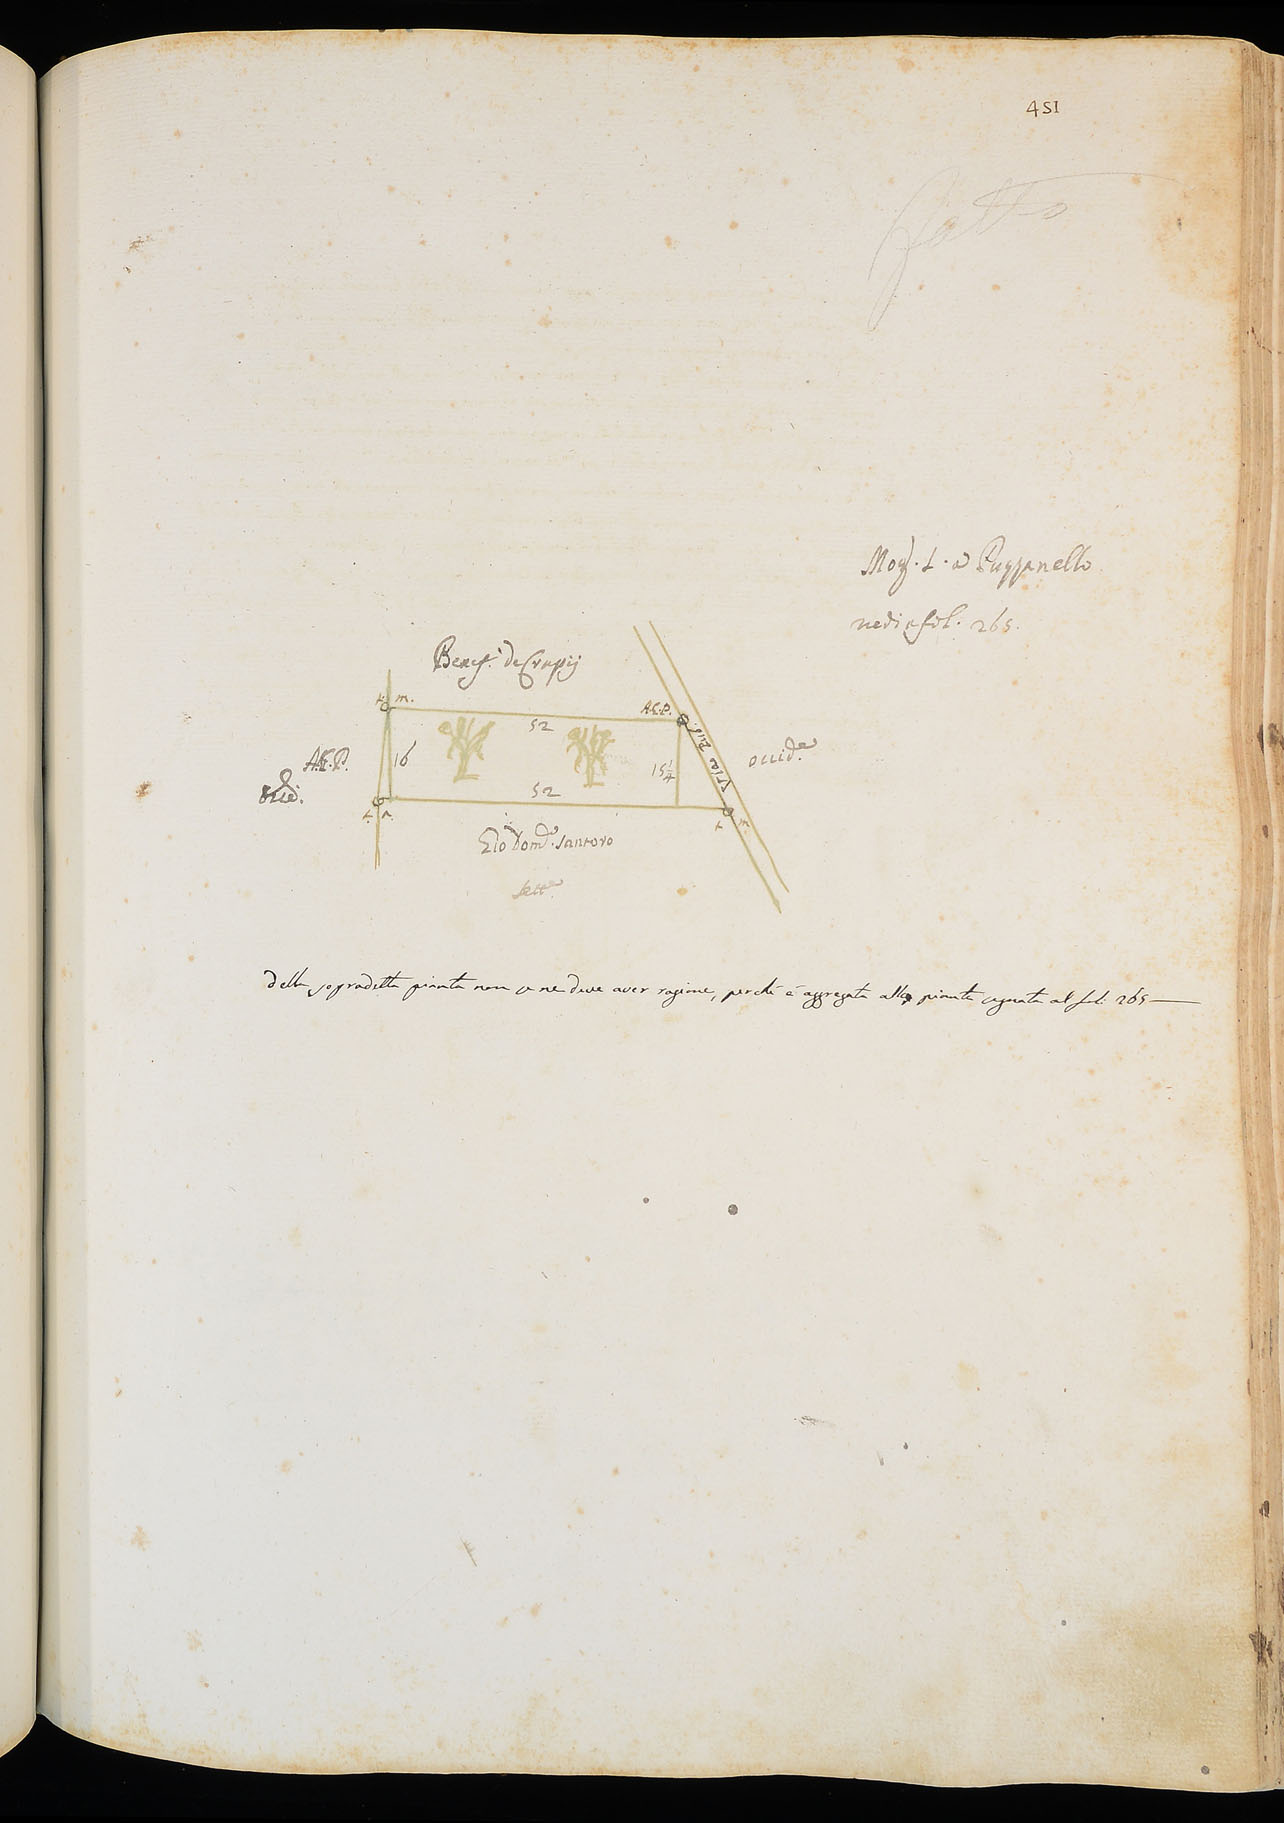 451
Fatto
a Puzzanello
vedi a fol. 265.
Benef.
t. m.
A.G.P.
52
16
15 1/4
Via Pub.
occid.e
A.G.P.
52
t.
t. m.
Dom.co Santoro
sett.e
della sopradetta pianta non se ne deve aver ragione, perchè è aggregata alla pianta segnata al fol. 265